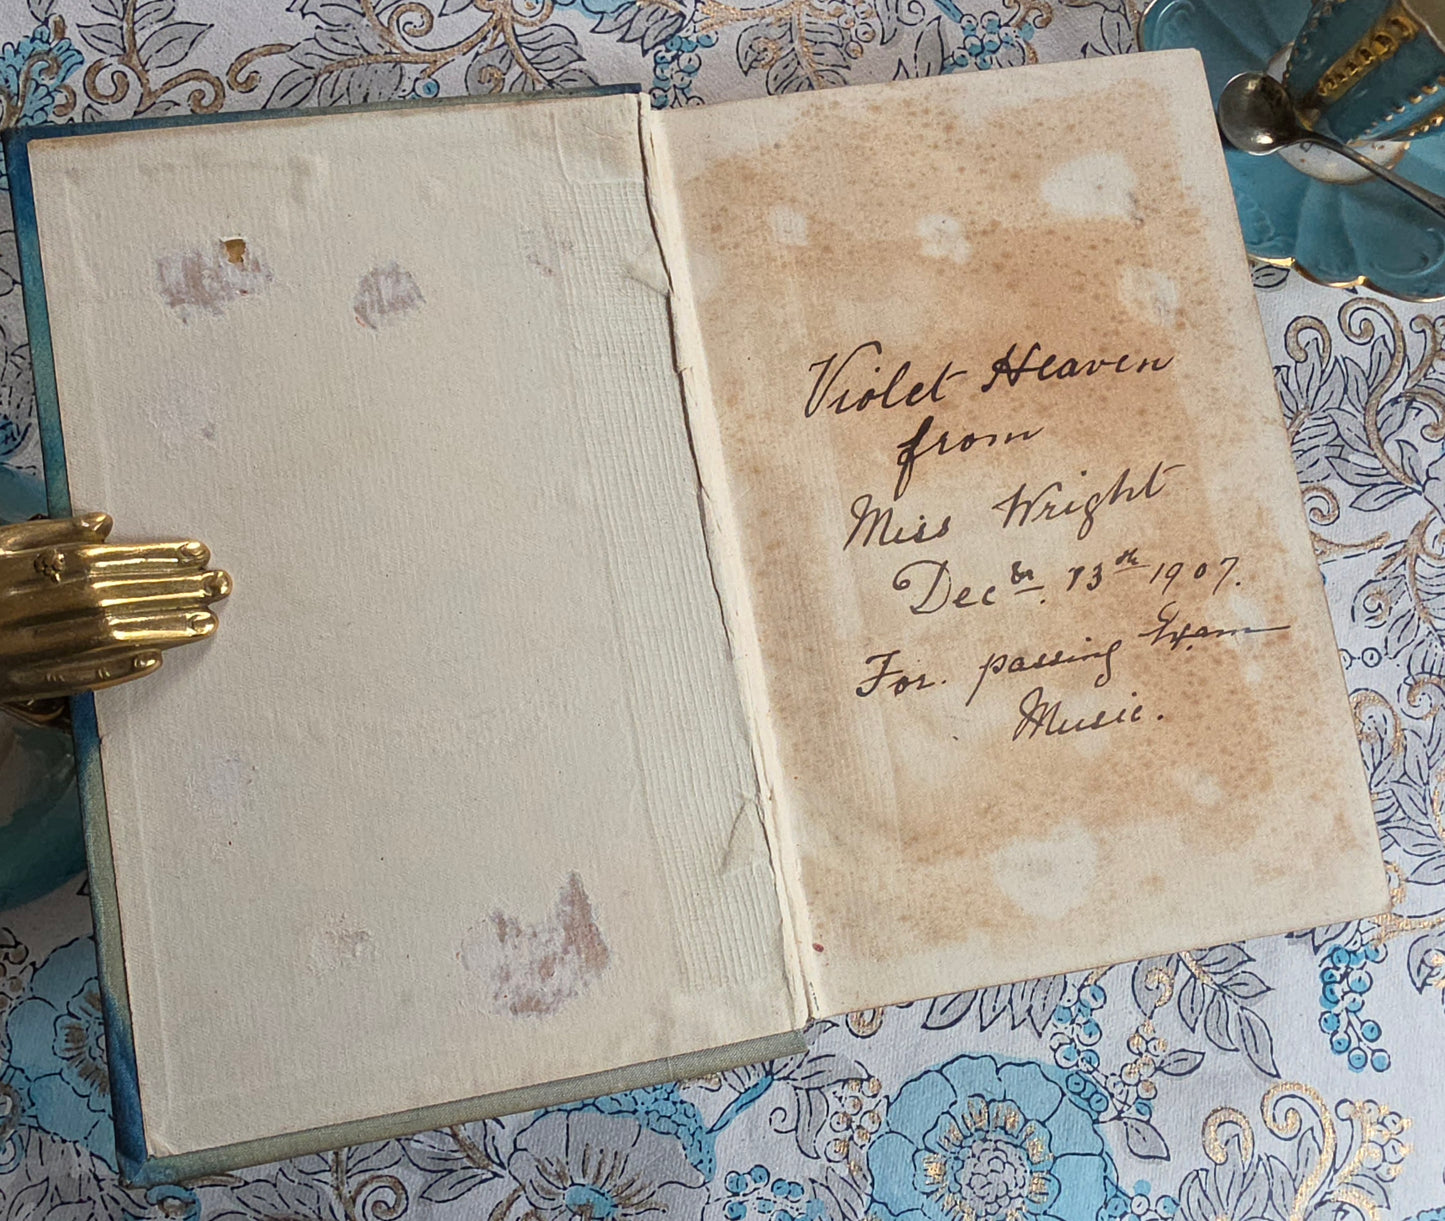 Violet Heaven
from
Miss Wright
Decbr. 13th 1907.
For. passing Exam
Music.